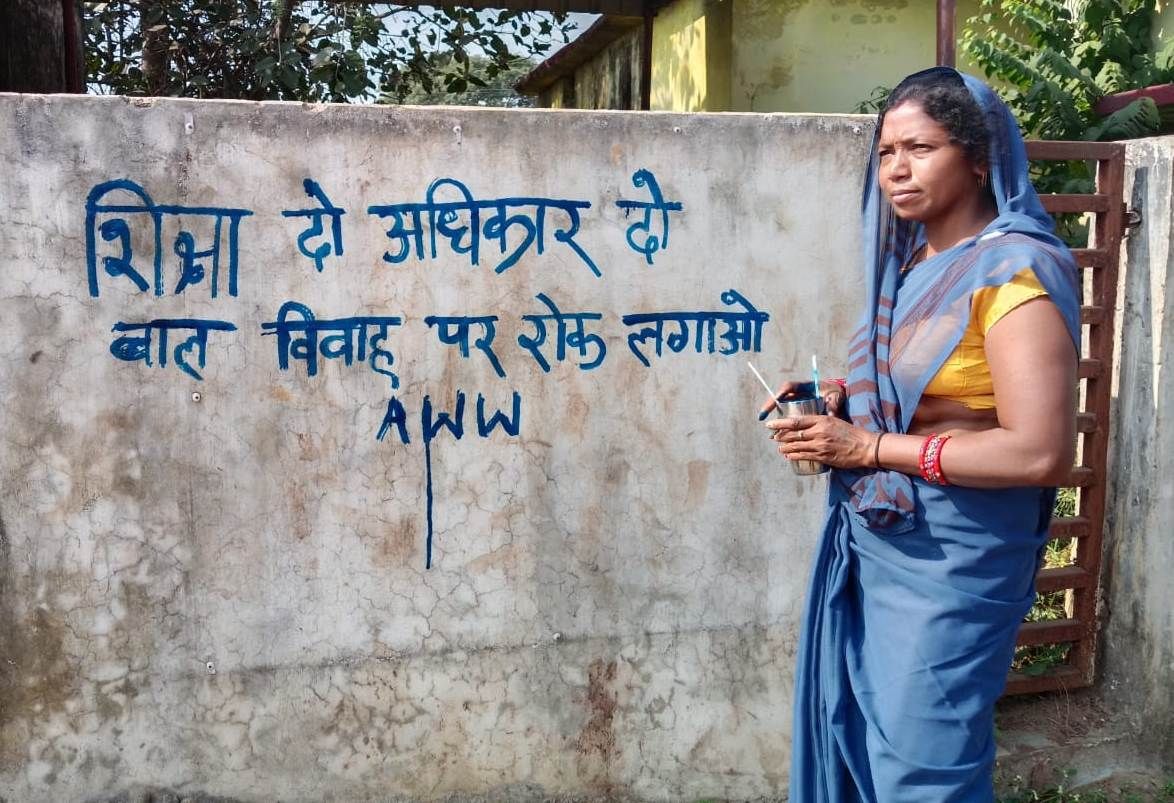 शिक्षा दो अधिकार दो
बाल विवाह पर रोक लगाओ
AWW